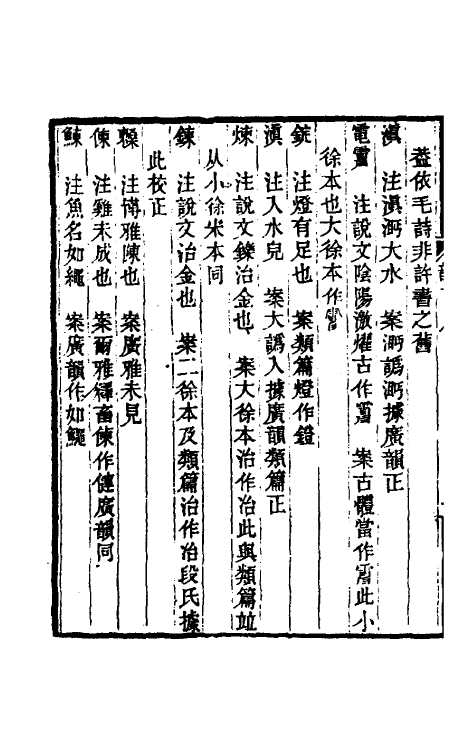 蓋依毛詩非許書之舊
滇　注滇沔大水　案沔譌沔據廣韻正
電𩃀　注說文陰陽激燿古作　案古體當作　此小
徐本也大徐本作
錠　注燈有足也　案類篇燈作鐙
滇　注入水皃　案大譌入據廣韻類篇正
煉　注說文鑠治金也　案大徐本治作冶此與類篇竝
从小徐宋本同
鍊　注說文治金也　案二徐本及類篇治作冶段氏據
此校正
　注博雅陳也　案廣雅未見
僆　注雞未成也　案爾雅釋畜僆作健廣韻同
鰊　注魚名如繩　案廣韻作如鱦